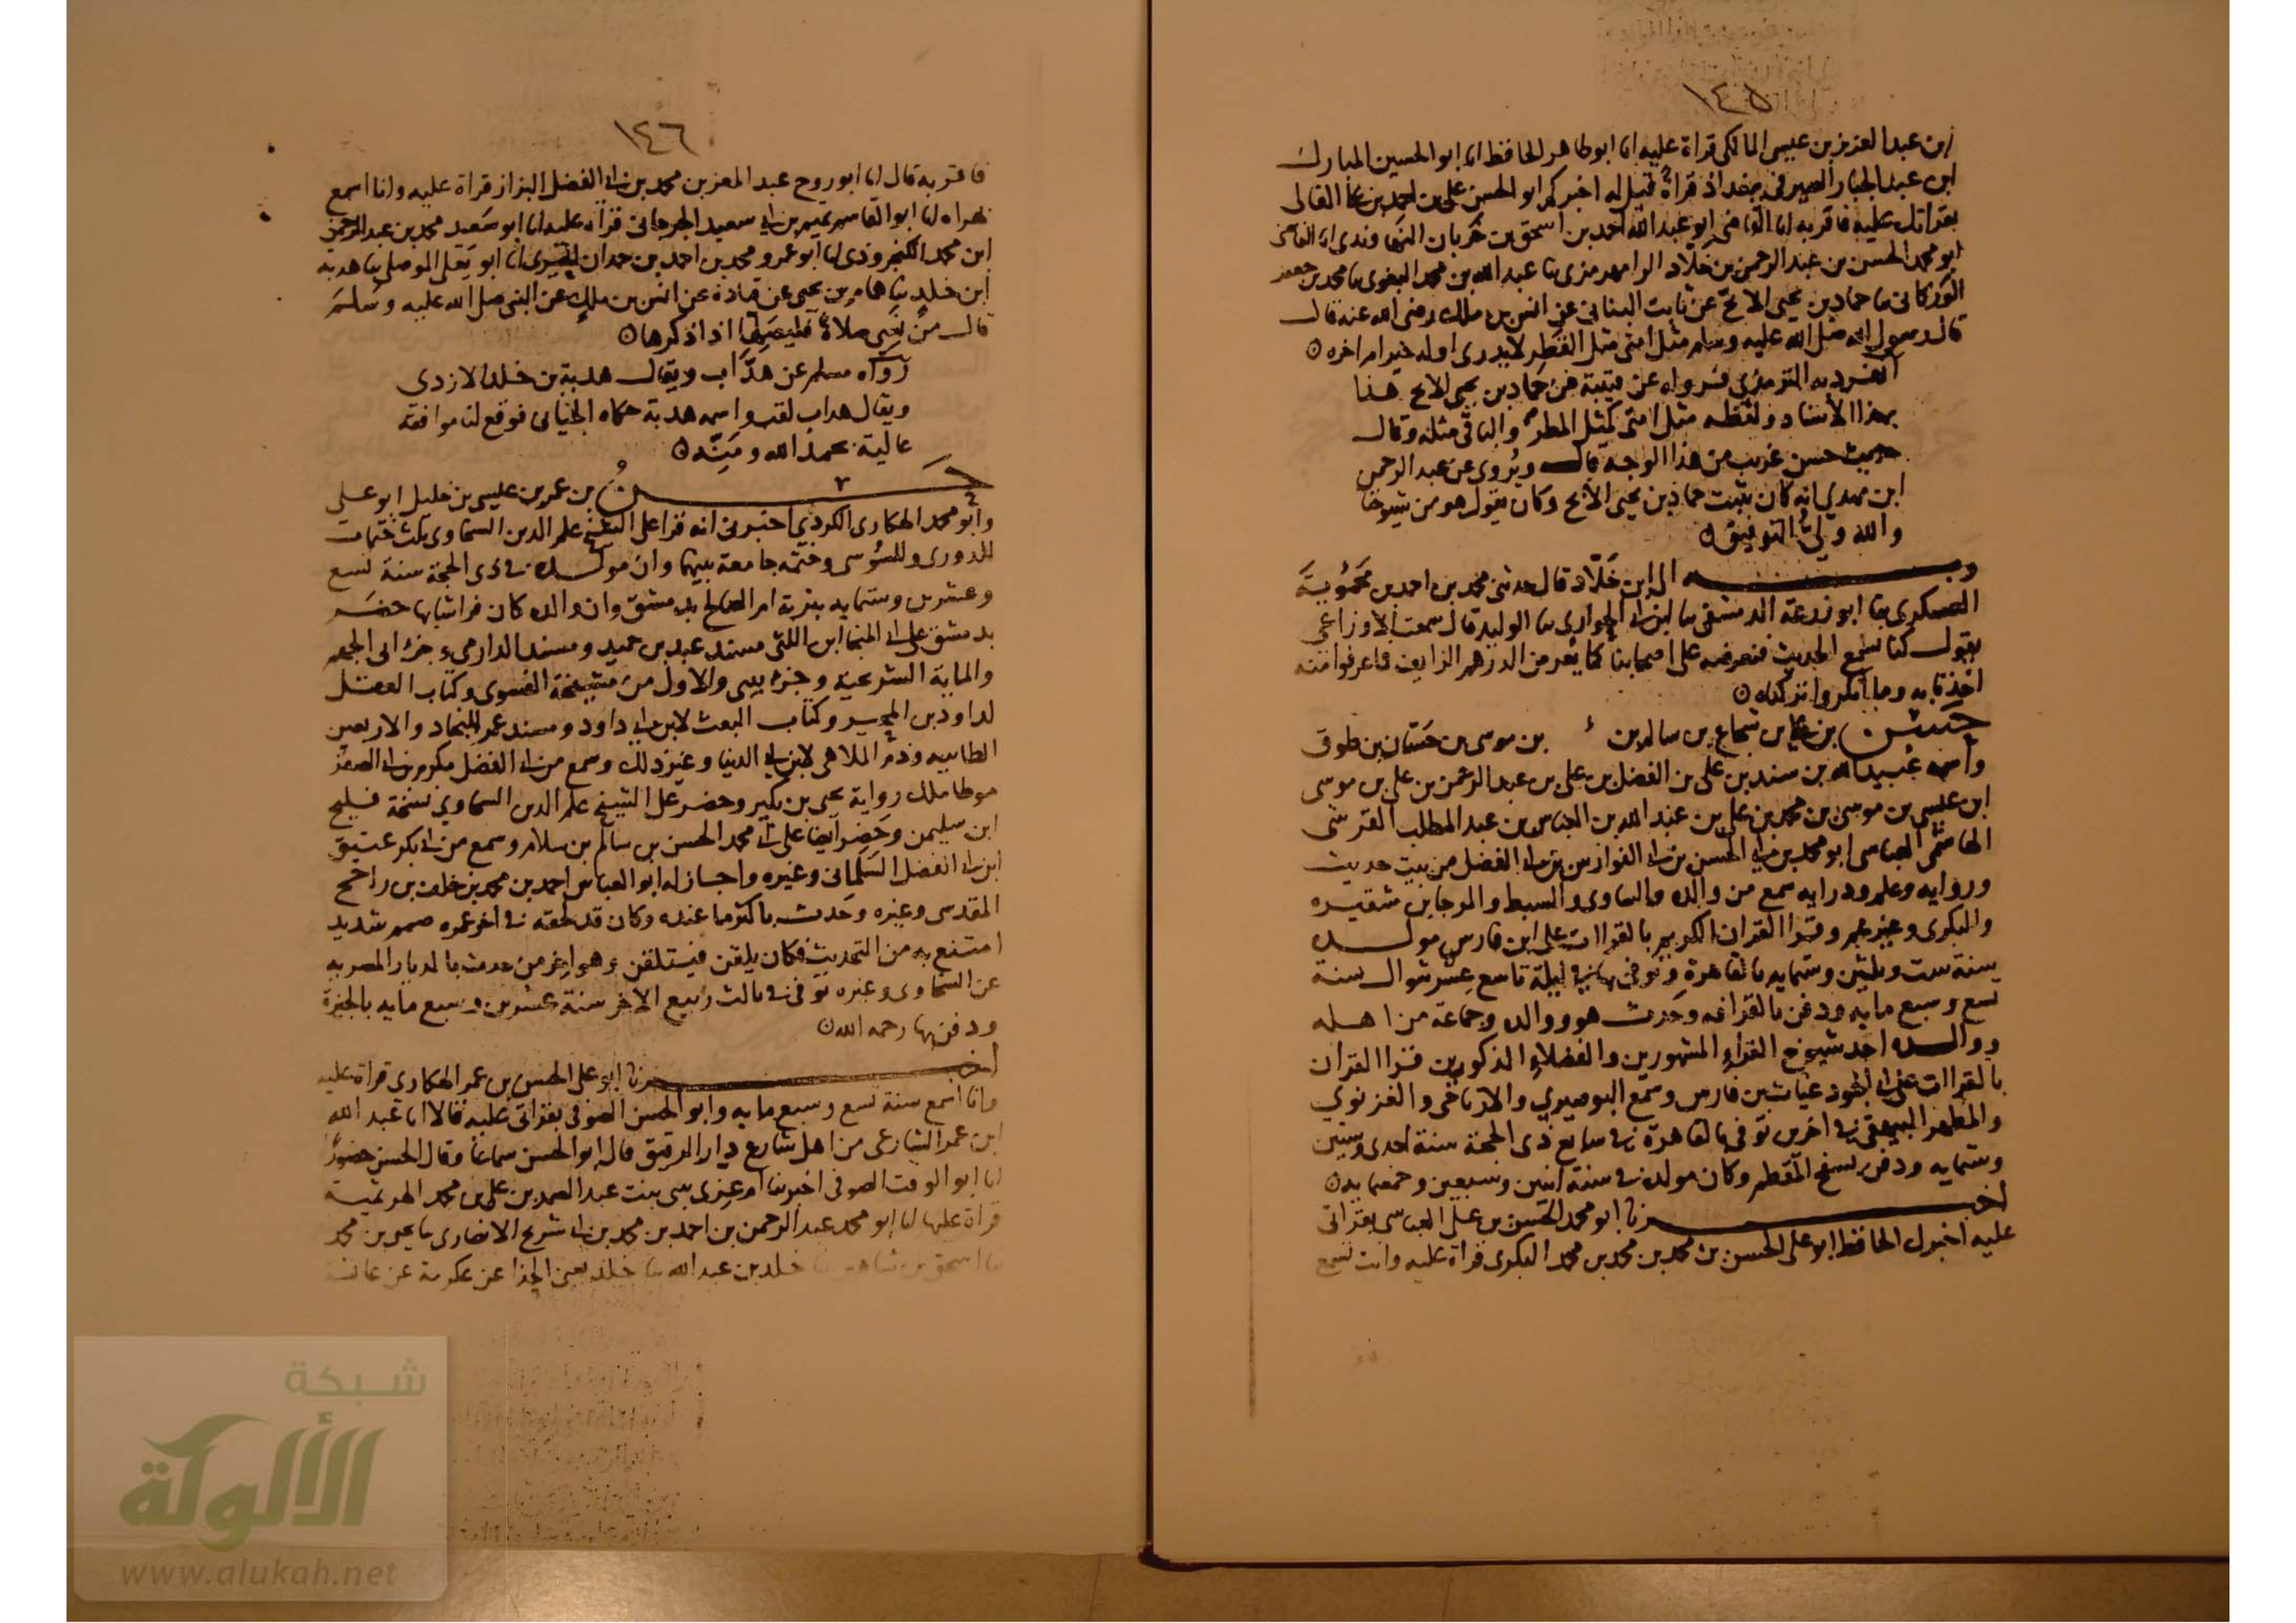 ١٤٥
بن عبد العزيز بن عيسى المالكي قراة عليه انا ابو طاهر الحافظ انا ابو الحسين المبارك
ابن عبد الجبار الصيرفي ببغداد قراةً قيل له اخبركم ابو الحسن علي بن احمد بن علي الفالي
بقراتك عليه فاقر به انا القاضي ابو عبد الله احمد بن اسحق بن خربان النهاوندي انا القاضي
ابو محمد الحسن بن عبد الرحمن بن خلاد الرامهرمزي نا عبد الله بن محمد البغوي نا محمد بن جعفر
الوركاني نا حماد بن يحيى الابح عن ثابت البناني عن انس بن ملك رضي الله عنه قال
قال رسول الله صلى الله عليه وسلم مثل امتي مثل القطر لا يدرى اوله خير ام اخره
انفرد به الترمذي فرواه عن قتيبة عن حماد بن يحيى الابح هذا
بهذا الاسناد ولفظه مثل امتي كمثل المطر والباقي مثله وقال
حديث حسن غريب من هذا الوجه قال ويُروى عن عبد الرحمن
ابن مهدي انه كان يثبت حماد بن يحيى الابح وكان يقول هو من شيوخنا
والله ولي التوفيق
وبه ال ابن خلاد قال حدثني محمد بن احمد بن محموية
العسكري نا ابو زرعة الدمشقي نا ابن ابي الحواري نا الوليد قال سمعت الاوزاعي
يقول كنا نسمع الحديث فنعرضه على اصحابنا كما يعرض الدرهم الزايف فما عرفوا منه
اخذنا به وما انكروا تركناه
حسن بن علي بن شجاع بن سالم بن بن موسى بن حسان بن طوق
واسمه عبيد الله بن سند بن علي بن الفضل بن علي بن عبد الرحمن بن علي بن موسى
ابن عيسى بن موسى بن محمد بن علي بن عبد الله بن العباس بن عبد المطلب القرشي
الهاشمي العباسي ابو محمد بن ابي الحسن بن ابي الفوارس بن ابي الفضل من بيت حديث
ورواية وعلم ودراية سمع من والده والساوي والسبط والمرجا بن شقيره
والبكري وغيرهم وقرا القران الكريم بالقراات على ابن فارس مولده
سنة ست وثلثين وستمايه بالقاهرة وتوفي بها في ليلة تاسع عشر شوال سنة
تسع وسبع مايه ودفن بالقرافه وحدث هو ووالده وجماعة من اهله
ووالده احد شيوخ القراء المشهورين والفضلاء المذكورين قرا القران
بالقراات على ابي الجود غياث بن فارس وسمع البوصيري والارتاحي والغزنوي
والمطهر البيهقي في اخرين توفي بالقاهرة في سابع ذي الحجة سنة احدى وستين
وستمايه ودفن بسفح المقطم وكان مولده في سنة اثنين وسبعين وخمسمايه
اخبرنا ابو محمد الحسن بن علي العباسي بقراتي
عليه اخبرك الحافظ ابو علي الحسن بن محمد بن محمد بن محمد البكري قراة عليه وانت تسمع
١٤٦
فاقر به قال انا ابو روح عبد المعز بن محمد بن ابي الفضل البزاز قراة عليه وانا اسمع
بهراه انا ابو القاسم تميم بن ابي سعيد الجرجاني قراة عليه انا ابو سعيد محمد بن عبد الرحمن
ابن محمد الكنجروذي انا ابو عمرو محمد بن احمد بن حمدان الحيري انا ابو يعلى الموصلي نا هدبة
ابن خلد نا همام بن يحيى عن قتادة عن انس بن ملك عن النبي صلى الله عليه وسلم
قال من نسي صلاة فليصلها اذا ذكرها
رواه مسلم عن هدّاب ويقال هدبة بن خلد الازدي
ويقال هداب لقب واسمه هدبة حكاه الجياني فوقع لنا موافقة
عالية بحمد الله ومَنِّه
حسن بن عمر بن عيسى بن خليل ابو علي
وابو محمد الهكاري الكردي اخبرني انه قرا على الشيخ علم الدين السخاوي ثلث ختمات
للدوري وللسوسي وختمه جامعة بينهما وان مولده في ذي الحجة سنة تسع
وعشرين وستمايه بتربة ام الصالح بدمشق وان والده كان فراشا بها حضر
بدمشق على ابي المنجا ابن اللتي مسند عبد بن حميد ومسند الدارمي وجزء ابي الجهم
والماية الشريحية وجزء بيبى والاول من مشيخة الفسوي وكتاب العقل
لداود بن المحبر وكتاب البعث لابن ابي داود ومسند عمر للنجاد والاربعين
الطاييه وذم الملاهي لابن ابي الدنيا وغير ذلك وسمع من ابي الفضل مكرم بن ابي الصقر
موطا ملك رواية يحيى بن بكير وحضر على الشيخ علم الدين السخاوي نسخة فليح
ابن سليمن وحضر ايضا على ابي محمد الحسن بن سالم بن سلام وسمع من ابي بكر عتيق
ابن ابي الفضل السلماني وغيره واجاز له ابو العباس احمد بن محمد بن خلف بن راجح
المقدسي وغيره وحدث باكثر ما عنده وكان قد لحقه في اخر عمره صمم شديد
امتنع به من التحديث فكان يلقن فيستلقن وهو اخر من حدث بالديار المصريه
عن السخاوي وغيره توفي في ثالث ربيع الاخر سنة عشرين وسبع مايه بالجيزة
ودفن بها رحمه الله
اخبرنا ابو علي الحسن بن عمر الهكاري قراة عليه
وانا اسمع سنة تسع وسبع مايه وابو الحسن الصوفي بقراتي عليه قالا انا عبد الله
ابن عمر الشارعي من اهل شارع دار الرقيق قال ابو الحسن سماعا وقال الحسن حضورًا
انا ابو الوقت الصوفي اخبرتنا ام عزى بيبى بنت عبد الصمد بن علي بن محمد الهرثمية
قراة عليها انا ابو محمد عبد الرحمن بن احمد بن محمد بن ابي شريح الانصاري نا يحيى بن محمد
نا اسحق بن شاهين نا خلد بن عبد الله نا خلد يعني الحذا عن عكرمة عن عائشة
شبكة
الألوكة
www.alukah.net